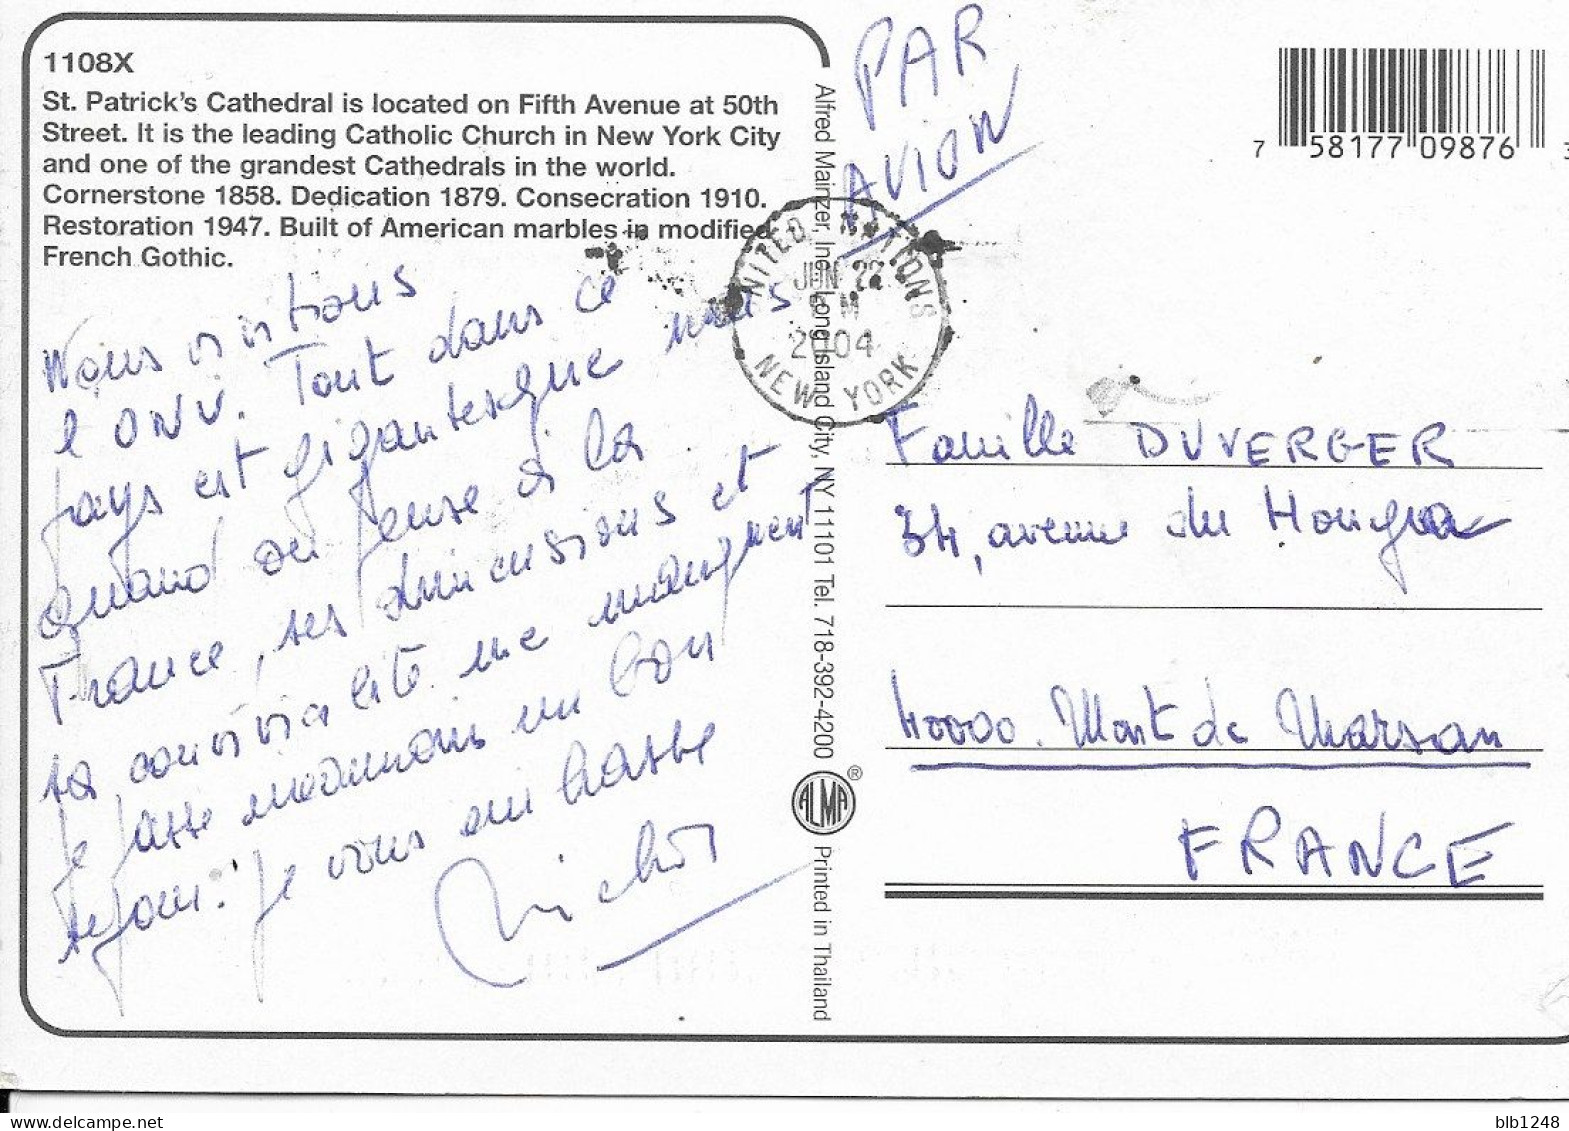 1108X
St. Patrick's Cathedral is located on Fifth Avenue at 50th
Street. It is the leading Catholic Church in New York City
and one of the grandest Cathedrals in the world.
Cornerstone 1858. Dedication 1879. Consecration 1910.
Restoration 1947. Built of American marbles in modified
French Gothic.
Nous visitons
l'ONU. Tout dans ce
pays est gigantesque mais
quand on pense à la
France, ses dimensions et
sa convivialité me manquent
je passe néanmoins un bon
séjour. Je vous embrasse
Alfred Mainzer, Inc., Long Island City, NY 11101 Tel. 718-392-4200
ALMA ®
Printed in Thailand
PAR
AVION
7 58177 09876 3
UNITED NATIONS
JUN 22
PM
2004
NEW YORK
Famille DUVERGER
34, avenue du
40000. Mont de Marsan
FRANCE
blb1248